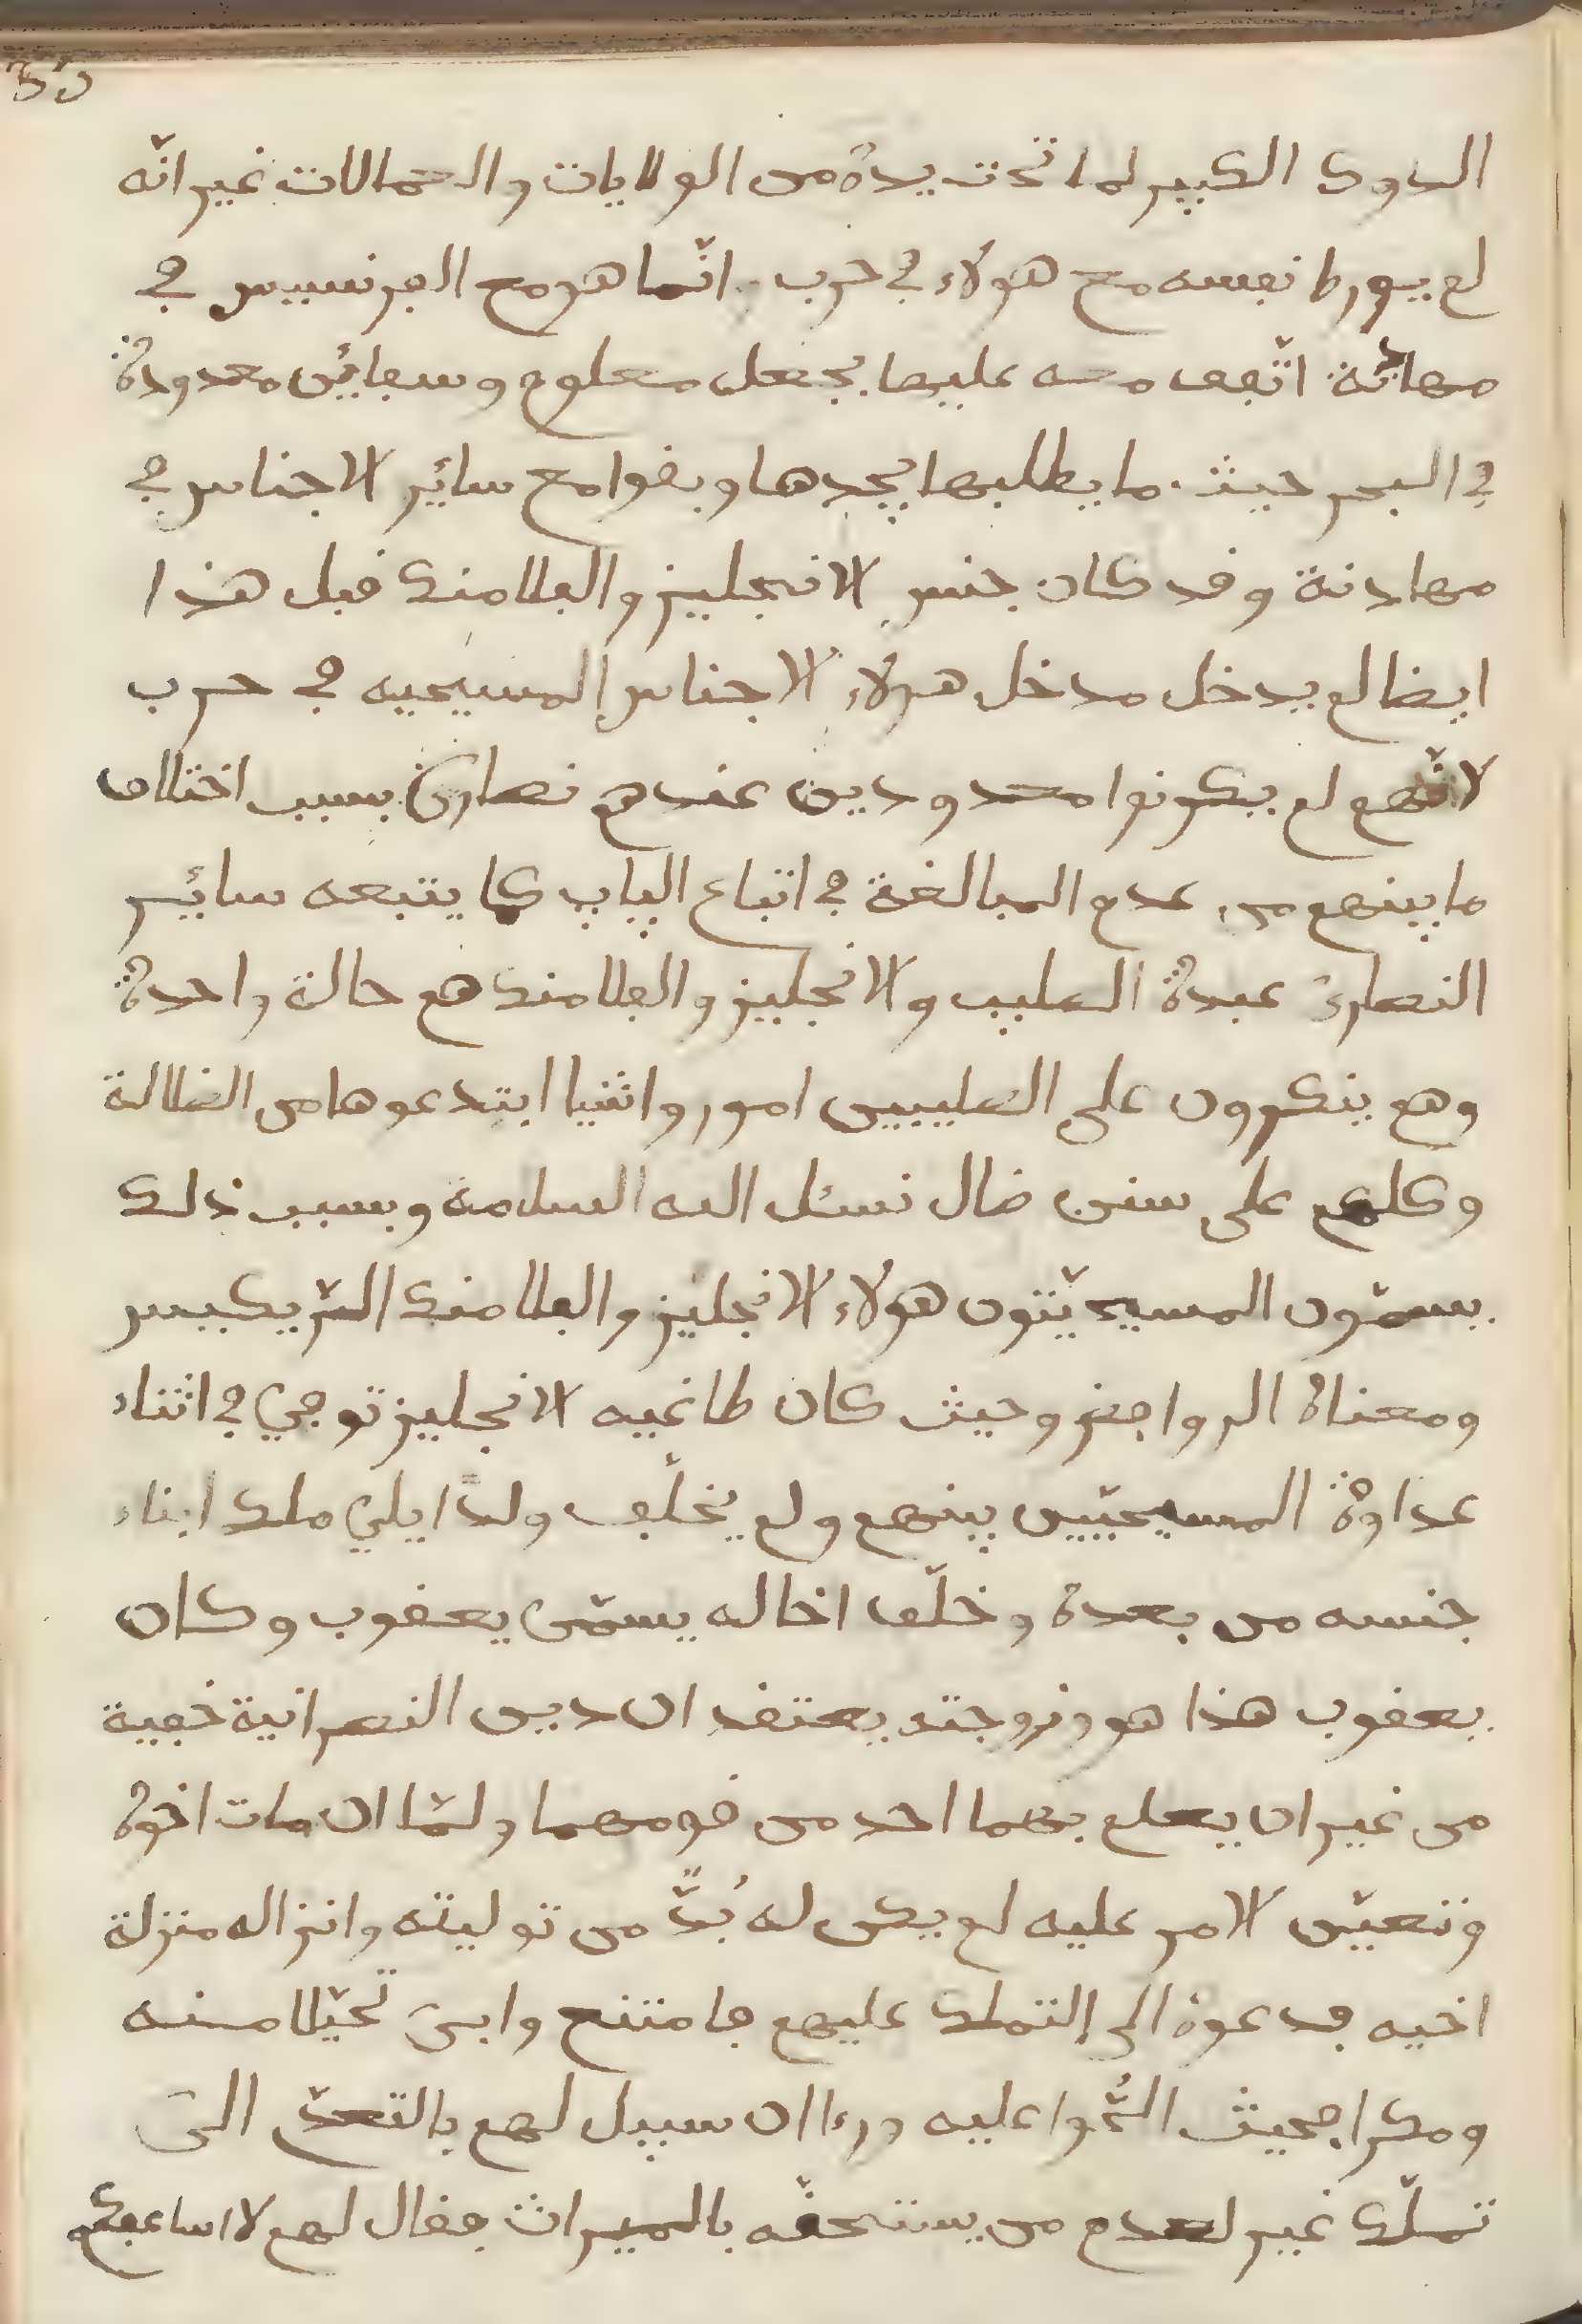 الدوك الكبير لما تحت يده من الولايات والعمالات غير انّه
لم يورط نفسه مع هولاء في حرب انّما هو مع الفرنسيس في
مهادنة اتّفق معه عليها بجعل معلوم وسفائن معدودة
في البحر حيث ما يطلبها يجدها وبقوا مع سائر الاجناس في
مهادنة وقد كان جنس الانجليز والفلامنك قبل هذا
ايضا لم يدخل مدخل هولاء الاجناس المسيحيه في حرب
لانّهم لم يكونوا معدودين عندهم نصارى بسبب اختلاف
ما بينهم من عدم المبالغة في اتباع الپاپ كما يتبعه سائر
النصارى عبدة الصليب والانجليز والفلامنك هم حالة واحدة
وهم ينكرون على الصليبين امور واشيا ابتدعوها من الضلالة
وكلهم على سنن ضال نسئل الله السلامة وبسبب ذلك
يسمّون المسيحيّون هولاء الانجليز والفلامنك
ومعناه الروافض وحيث كان طاغيه الانجليز توفي في اثناء
عداوة المسيحيّين بينهم ولم يخلّف ولدًا يلي ملك ابناء
جنسه من بعده وخلّف اخا له يسمّى يعقوب وكان
يعقوب هذا هو وزوجته يعتقد ان دين النصرانية خفية
من غير ان يعلم بهما احد من قومهما ولمّا ان مات اخوه
وتعيّن الامر عليه لم يكن له بُدٌّ من توليته وانزاله منزلة
اخيه فدعوه الى التملك عليهم فامتنع وابى تحيّلا منه
ومكرا فحيث الحُّوا عليه وراا ان سبيل لهم بالتعدّ الى
تملّك غير لعدم من يستحقّه بالميراث فقال لهم لا اساعفكم